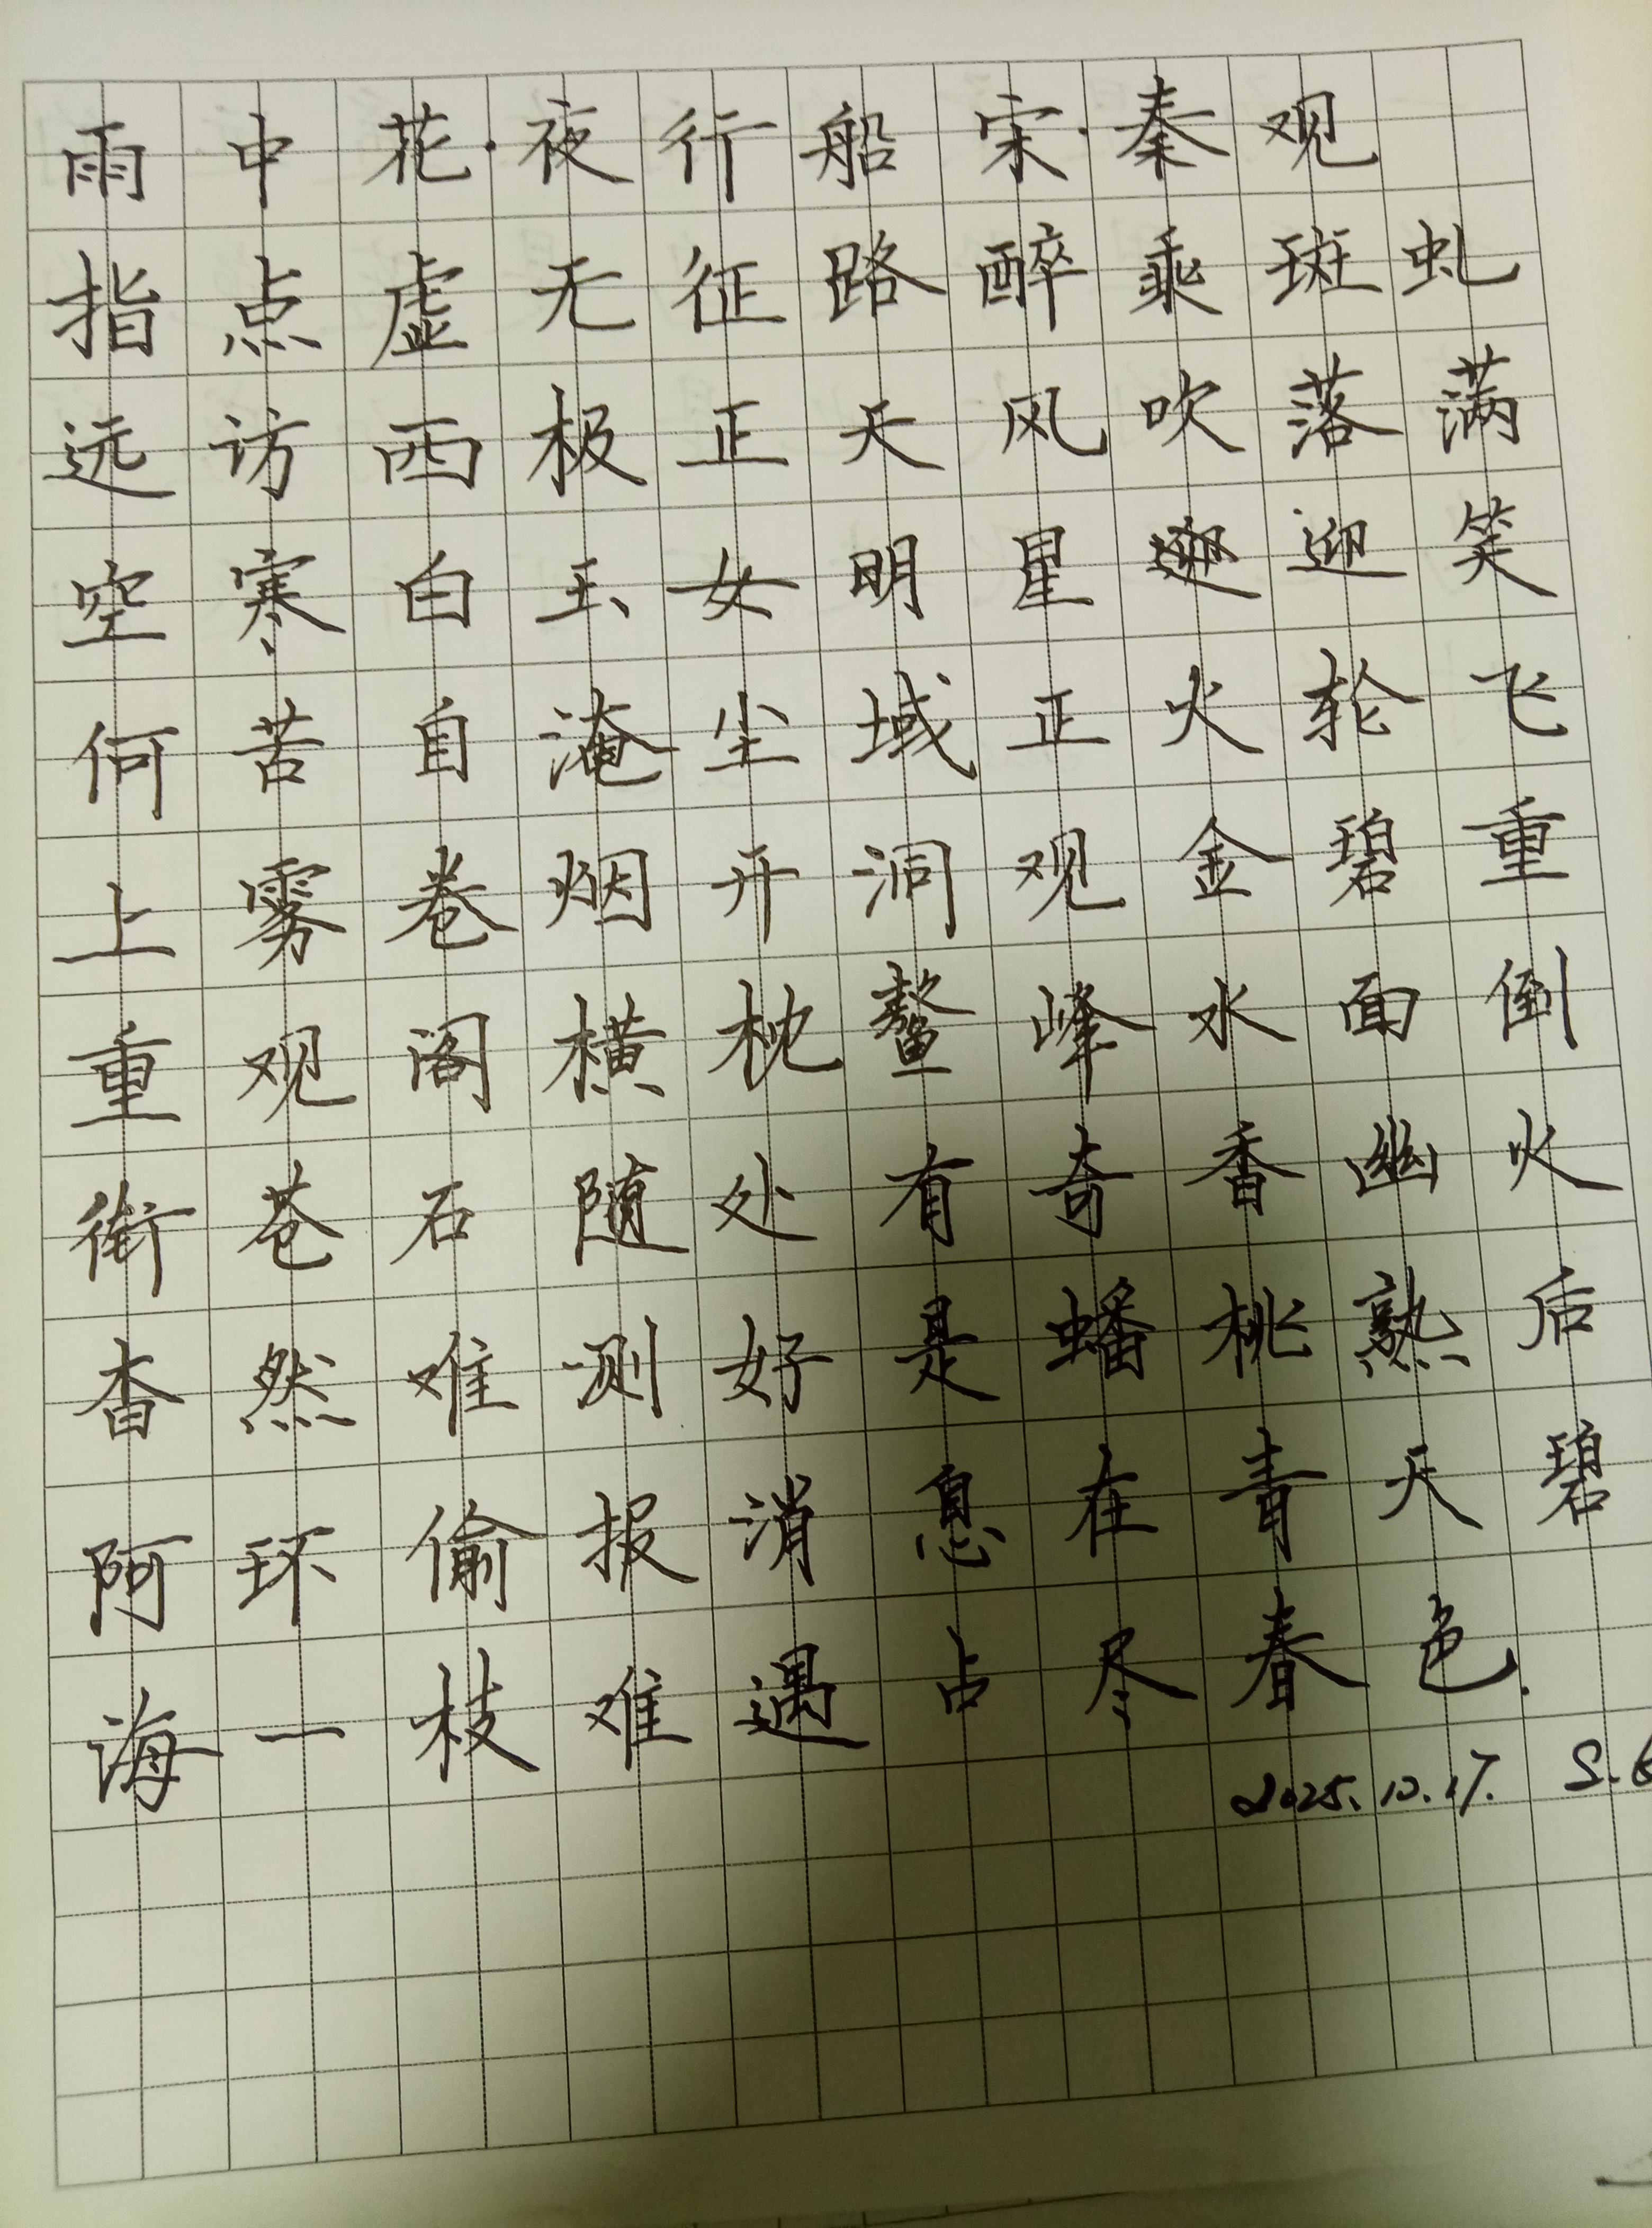 雨中花·夜行船宋·秦观
指点虚无征路醉乘斑虬
远访西极正天风吹落满
空寒白玉女明星迎笑
何苦自淹尘域正火轮飞
上雾卷烟开洞观金碧重
重观阁横枕鳌峰水面倒
衔苍石随处有奇香幽火
杳然难测好是蟠桃熟后
阿环偷报消息在青天碧
海一枝难遇占尽春色.
2025.10.17.